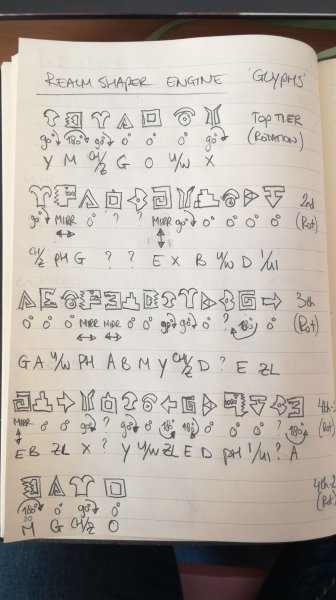 REALM SHAPER ENGINE 'GLYPHS'
TOP TIER
90° 180° 90° 0° 0° 0° 90° (ROTATION)
Y M CH/Z G O U/W X
2nd
90° MIRR 0° ? ? MIRR 90° 0° 0° 0° 0° (Rot)
CH/Z PH G ? ? E X B U/W D I/U
3rd
0° 0° 0° MIRR MIRR 0° 0° 90° 90° 0° ? 180° 0° (Rot)
G A U/W PH A B M Y CH/Z D ? E ZL
MIRR 0° 0° 90° ? 90° 0° 180° 180° 0° 0° 0° ? 180° (Rot)
E B ZL X ? Y U/W ZL E D PH ? A
180° 0° 90° 0° (Rot)
M G CH/Z O